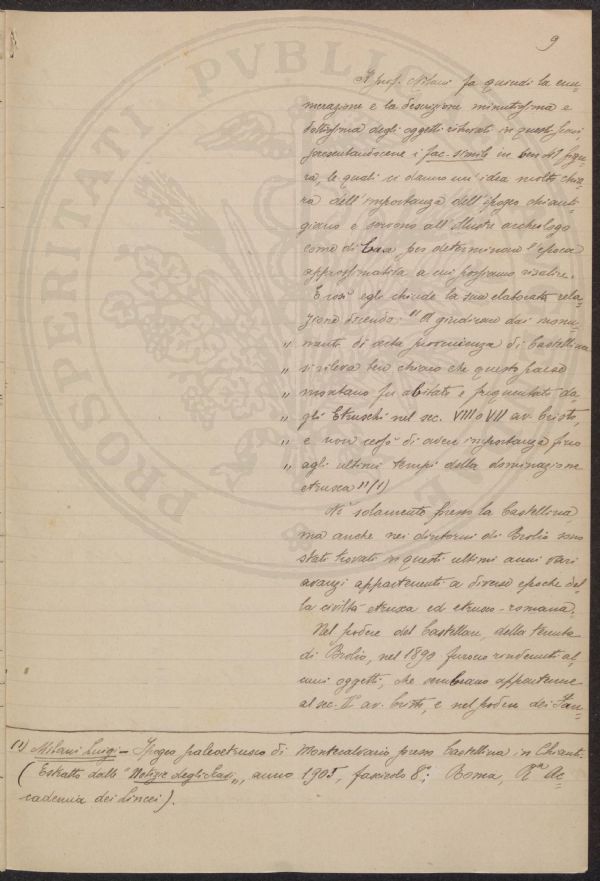 9
Il prof. Milani fa quindi la enu-
merazione e la descrizione minutissima e
dottissima degli oggetti ritrovati in questi scavi,
presentandocene i fac-simile in ben 41 figu-
ra, le quali ci danno un'idea molto chia-
ra dell'importanza dell'ipogeo chianti-
giano e servono all'illustre archeologo
come di base per determinare l'epoca
approssimativa a cui possiamo risalire.
E così egli chiude la sua elaborata rela-
zione dicendo: "A giudicare dai monu-
„ menti di certa provenienza di Castellina
„ si rileva ben chiaro che questo paese
„ montano fu abitato e frequentato da-
„ gli Etruschi nel sec. VIII o VII av. Cristo,
„ e non cessò di avere importanza fino
„ agli ultimi tempi della dominazione
etrusca" (1)
Nè solamente presso la Castellina,
ma anche nei dintorni di Brolio sono
stati trovati in questi ultimi anni vari
avanzi appartenenti a diverse epoche del-
la civiltà etrusca ed etrusco-romana.
Nel podere del Castellare, della tenuta
di Brolio, nel 1890 furono rinvenuti al-
cuni oggetti, che sembrano appartenere
al sec. IIº av. Cristo, e nel podere dei Tan-
(1) Milani Luigi - Ipogeo paleoetrusco di Montecalvario presso Castellina in Chianti.
(Estratto dalle "Notizie degli Scavi„, anno 1905, fascicolo 8º; Roma, Rª Ac-
cademia dei Lincei).
PROSPERITATI PVBLICAE